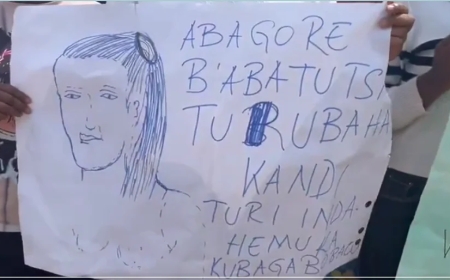 ABAGORE
B'ABATUTSI
TURUBAHA
KANDI
TURI INDA-
HEMUKA
KUBAGAB